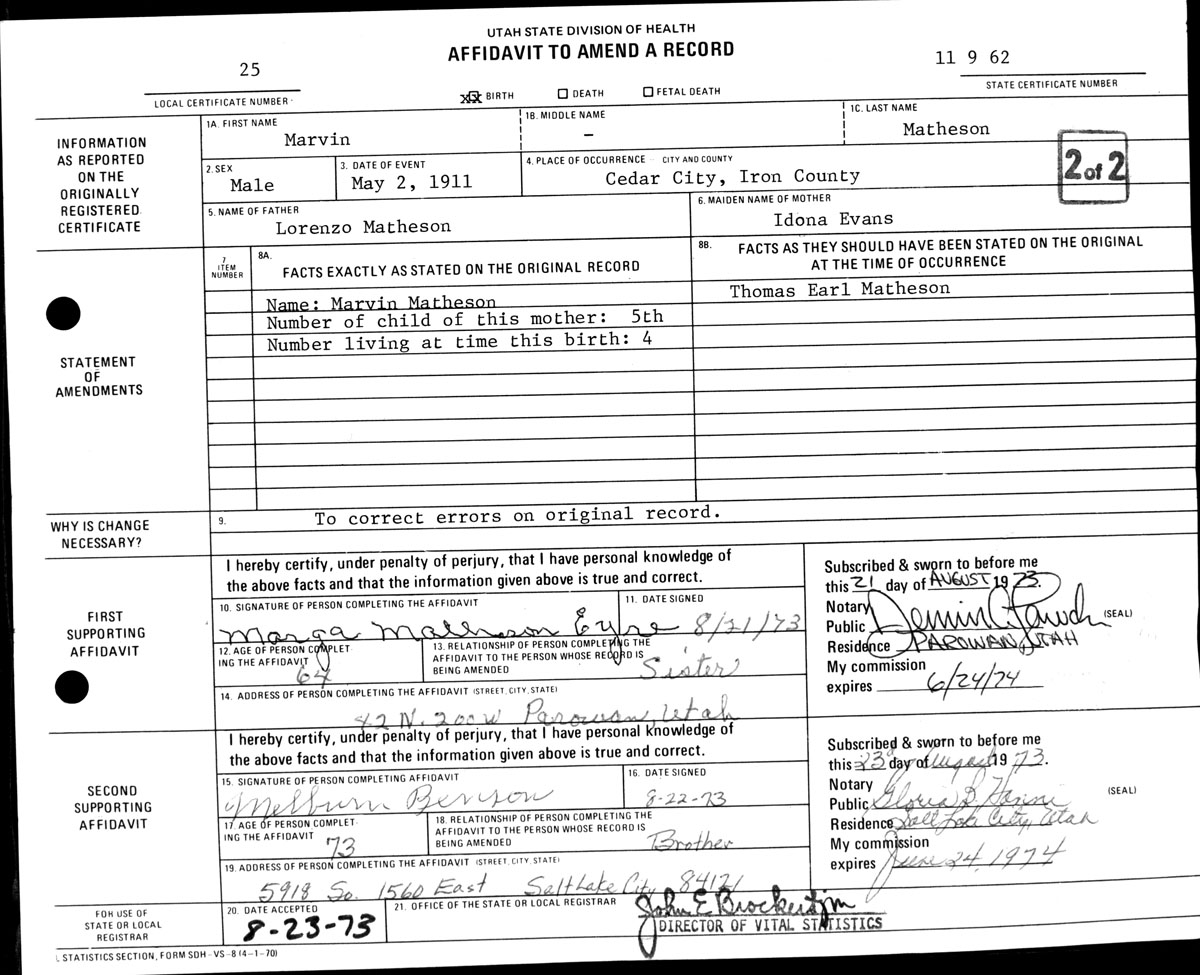 UTAH STATE DIVISION OF HEALTH
AFFIDAVIT TO AMEND A RECORD
25
LOCAL CERTIFICATE NUMBER
XX BIRTH DEATH FETAL DEATH
11 9 62
STATE CERTIFICATE NUMBER
INFORMATION
AS REPORTED
ON THE
ORIGINALLY
REGISTERED
CERTIFICATE
1A. FIRST NAME
Marvin
1B. MIDDLE NAME
–
1C. LAST NAME
Matheson
2. SEX
Male
3. DATE OF EVENT
May 2, 1911
4. PLACE OF OCCURRENCE – CITY AND COUNTY
Cedar City, Iron County
2 of 2
5. NAME OF FATHER
Lorenzo Matheson
6. MAIDEN NAME OF MOTHER
Idona Evans
STATEMENT
OF
AMENDMENTS
7
ITEM
NUMBER
8A.
FACTS EXACTLY AS STATED ON THE ORIGINAL RECORD
8B.
FACTS AS THEY SHOULD HAVE BEEN STATED ON THE ORIGINAL
AT THE TIME OF OCCURRENCE
Name: Marvin Matheson
Thomas Earl Matheson
Number of child of this mother: 5th
Number living at time this birth: 4
WHY IS CHANGE
NECESSARY?
9.
To correct errors on original record.
FIRST
SUPPORTING
AFFIDAVIT
I hereby certify, under penalty of perjury, that I have personal knowledge of
the above facts and that the information given above is true and correct.
10. SIGNATURE OF PERSON COMPLETING THE AFFIDAVIT
Marga Matheson Eyre
11. DATE SIGNED
8/21/73
12. AGE OF PERSON COMPLET-
ING THE AFFIDAVIT
64
13. RELATIONSHIP OF PERSON COMPLETING THE
AFFIDAVIT TO THE PERSON WHOSE RECORD IS
BEING AMENDED
Sister
14. ADDRESS OF PERSON COMPLETING THE AFFIDAVIT (STREET, CITY, STATE)
42 N. 200 W Parowan, Utah
Subscribed & sworn to before me
this 21 day of AUGUST 1973.
Notary
Public
(SEAL)
Residence PAROWAN, UTAH
My commission
expires 6/24/74
SECOND
SUPPORTING
AFFIDAVIT
I hereby certify, under penalty of perjury, that I have personal knowledge of
the above facts and that the information given above is true and correct.
15. SIGNATURE OF PERSON COMPLETING THE AFFIDAVIT
Melburn Benson
16. DATE SIGNED
8-22-73
17. AGE OF PERSON COMPLET-
ING THE AFFIDAVIT
73
18. RELATIONSHIP OF PERSON COMPLETING THE
AFFIDAVIT TO THE PERSON WHOSE RECORD IS
BEING AMENDED
Brother
19. ADDRESS OF PERSON COMPLETING THE AFFIDAVIT (STREET, CITY, STATE)
5918 So. 1560 East Salt Lake City 84121
Subscribed & sworn to before me
this 23 day of August 1973.
Notary
Public Gloria
(SEAL)
Residence Salt Lake City, Utah
My commission
expires June 24, 1974
FOR USE OF
STATE OR LOCAL
REGISTRAR
20. DATE ACCEPTED
8-23-73
21. OFFICE OF THE STATE OR LOCAL REGISTRAR
John E Brockert jm
DIRECTOR OF VITAL STATISTICS
L STATISTICS SECTION, FORM SDH-VS-8 (4-1-70)